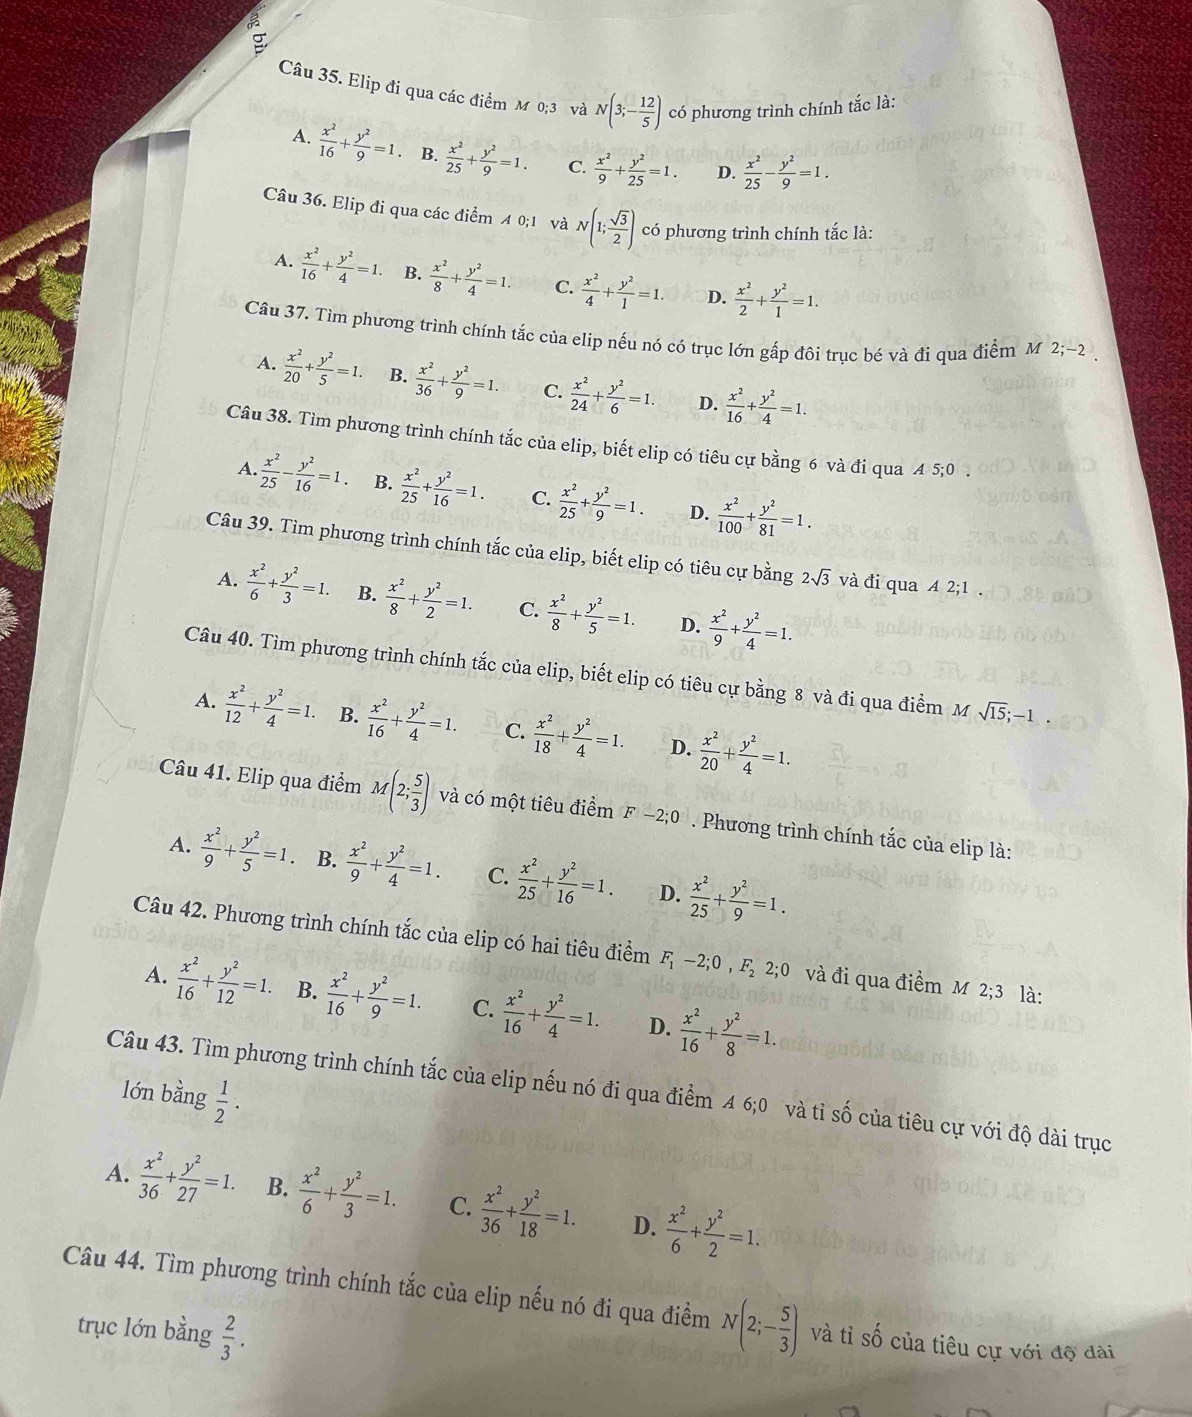 ng bìn
Câu 35. Elip đi qua các điểm M 0;3 và N(3;−12/5) có phương trình chính tắc là:
A. x²/16 + y²/9 = 1. B. x²/25 + y²/9 = 1. C. x²/9 + y²/25 = 1. D. x²/25 − y²/9 = 1.
Câu 36. Elip đi qua các điểm A 0;1 và N(1;√3/2) có phương trình chính tắc là:
A. x²/16 + y²/4 = 1. B. x²/8 + y²/4 = 1. C. x²/4 + y²/1 = 1. D. x²/2 + y²/1 = 1.
Câu 37. Tìm phương trình chính tắc của elip nếu nó có trục lớn gấp đôi trục bé và đi qua điểm M 2;−2 .
A. x²/20 + y²/5 = 1. B. x²/36 + y²/9 = 1. C. x²/24 + y²/6 = 1. D. x²/16 + y²/4 = 1.
Câu 38. Tìm phương trình chính tắc của elip, biết elip có tiêu cự bằng 6 và đi qua A 5;0 .
A. x²/25 − y²/16 = 1. B. x²/25 + y²/16 = 1. C. x²/25 + y²/9 = 1. D. x²/100 + y²/81 = 1.
Câu 39. Tìm phương trình chính tắc của elip, biết elip có tiêu cự bằng 2√3 và đi qua A 2;1 .
A. x²/6 + y²/3 = 1. B. x²/8 + y²/2 = 1. C. x²/8 + y²/5 = 1. D. x²/9 + y²/4 = 1.
Câu 40. Tìm phương trình chính tắc của elip, biết elip có tiêu cự bằng 8 và đi qua điểm M √15;−1 .
A. x²/12 + y²/4 = 1. B. x²/16 + y²/4 = 1. C. x²/18 + y²/4 = 1. D. x²/20 + y²/4 = 1.
Câu 41. Elip qua điểm M(2;5/3) và có một tiêu điểm F −2;0 . Phương trình chính tắc của elip là:
A. x²/9 + y²/5 = 1. B. x²/9 + y²/4 = 1. C. x²/25 + y²/16 = 1. D. x²/25 + y²/9 = 1.
Câu 42. Phương trình chính tắc của elip có hai tiêu điểm F₁ −2;0 , F₂ 2;0 và đi qua điểm M 2;3 là:
A. x²/16 + y²/12 = 1. B. x²/16 + y²/9 = 1. C. x²/16 + y²/4 = 1. D. x²/16 + y²/8 = 1.
Câu 43. Tìm phương trình chính tắc của elip nếu nó đi qua điểm A 6;0 và tỉ số của tiêu cự với độ dài trục
lớn bằng 1/2 .
A. x²/36 + y²/27 = 1. B. x²/6 + y²/3 = 1. C. x²/36 + y²/18 = 1. D. x²/6 + y²/2 = 1.
Câu 44. Tìm phương trình chính tắc của elip nếu nó đi qua điểm N(2;−5/3) và tỉ số của tiêu cự với độ dài
trục lớn bằng 2/3 .